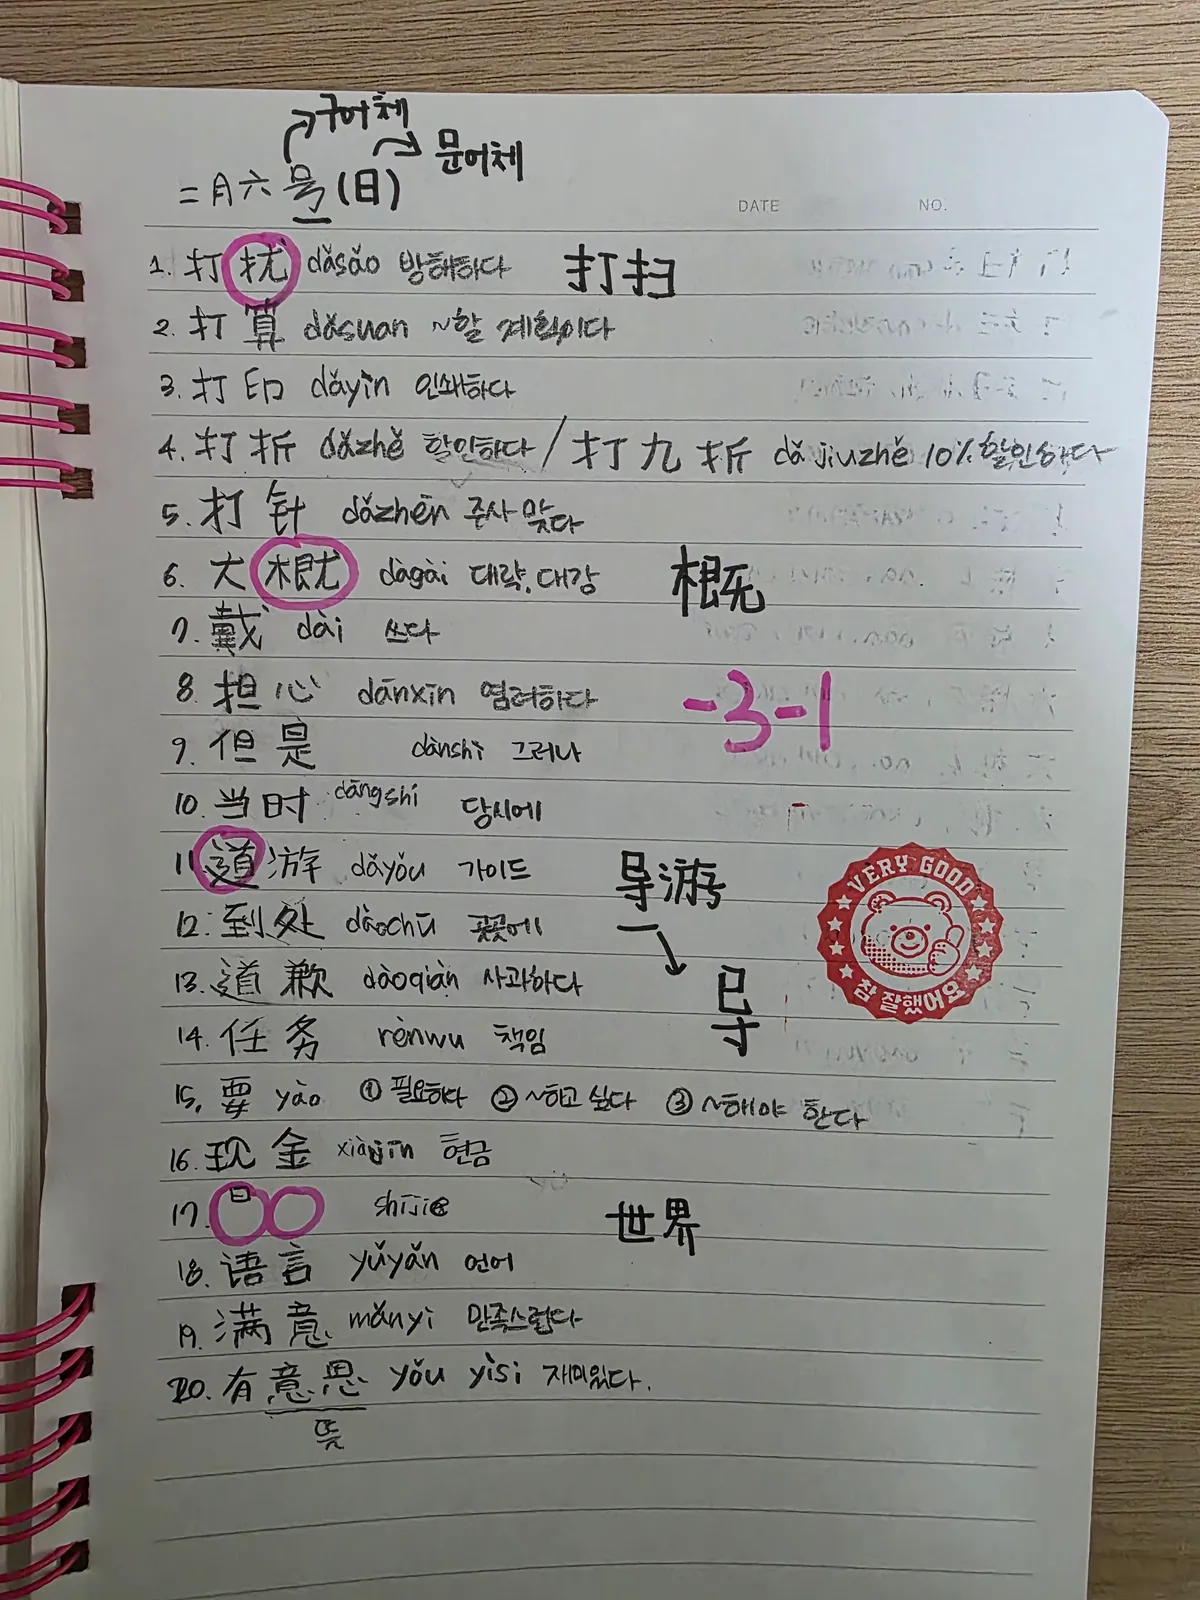 구어체
문어체
二月六号(日)
DATE NO.
1. 打扰 dǎsǎo 방해하다 打扫
2. 打算 dǎsuan ~할 계획이다
3. 打印 dǎyìn 인쇄하다
4. 打折 dǎzhě 할인하다 / 打九折 dǎ jiǔzhě 10% 할인하다
5. 打针 dǎzhēn 주사 맞다
6. 大 dàgài 대략, 대강 概
7. 戴 dài 쓰다
8. 担心 dānxīn 염려하다
-3-1
9. 但是 dànshì 그러나
10. 当时 dāngshí 당시에
11. 道游 dǎyǒu 가이드 导游
12. 到处 dàochù 곳곳에
VERY GOOD
참 잘했어요
13. 道歉 dàoqiàn 사과하다
14. 任务 rènwu 책임
15. 要 yào ① 필요하다 ② ~하고 싶다 ③ ~해야 한다
16. 现金 xiànjīn 현금
17. shìjiè 世界
18. 语言 yǔyǎn 언어
19. 满意 mǎnyì 만족스럽다
20. 有意思 yǒu yìsi 재미있다.
뜻